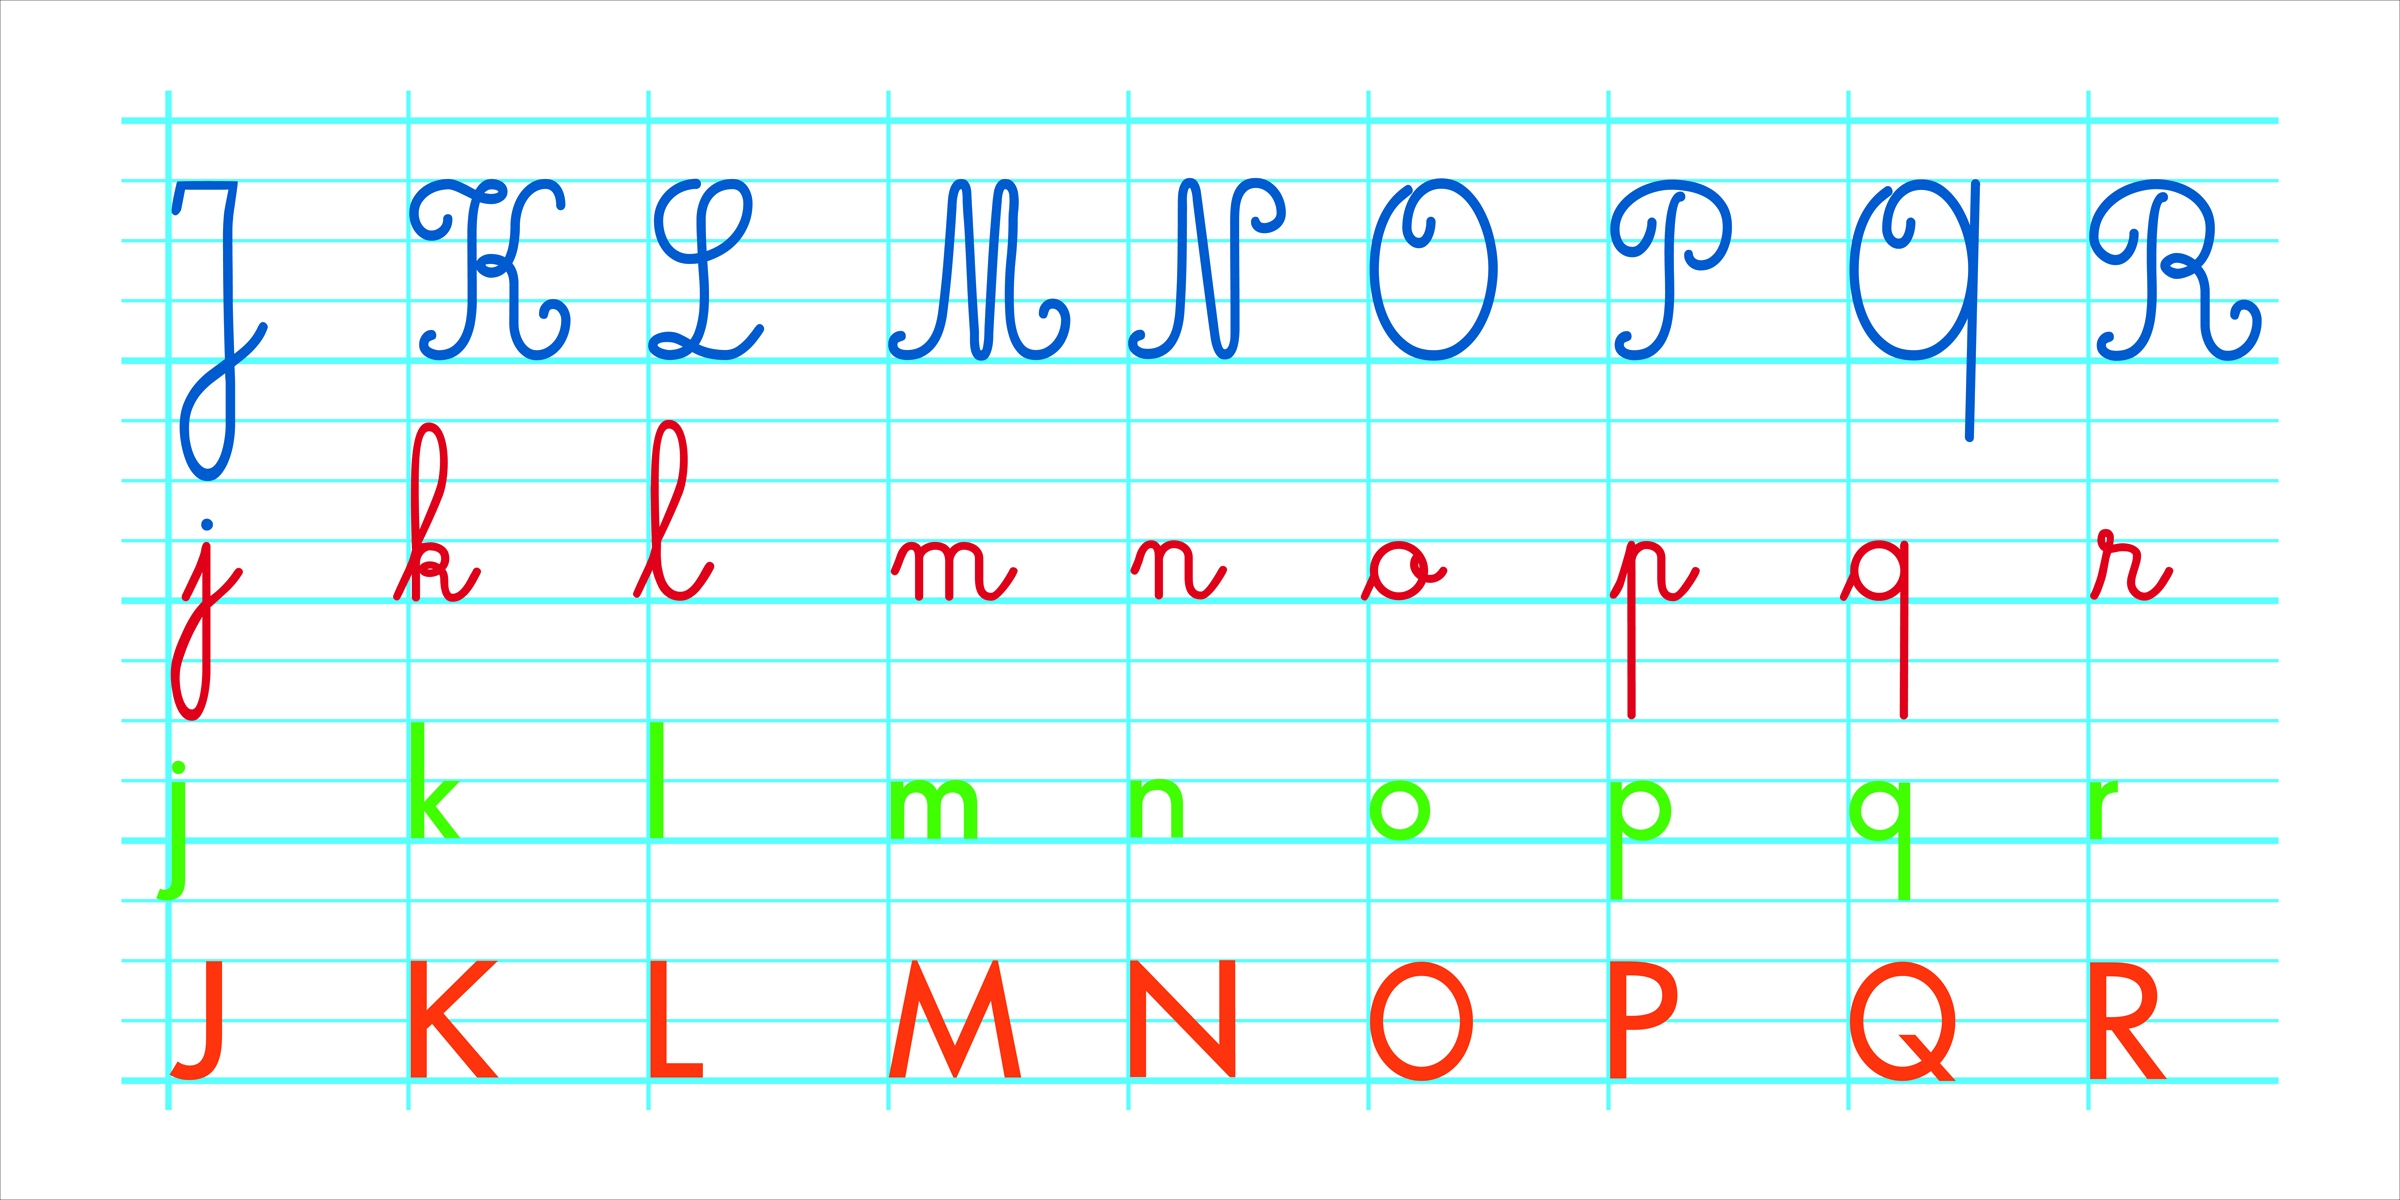 J K L M N O P Q R
j k l m n o p q r
j k l m n o p q r
J K L M N O P Q R